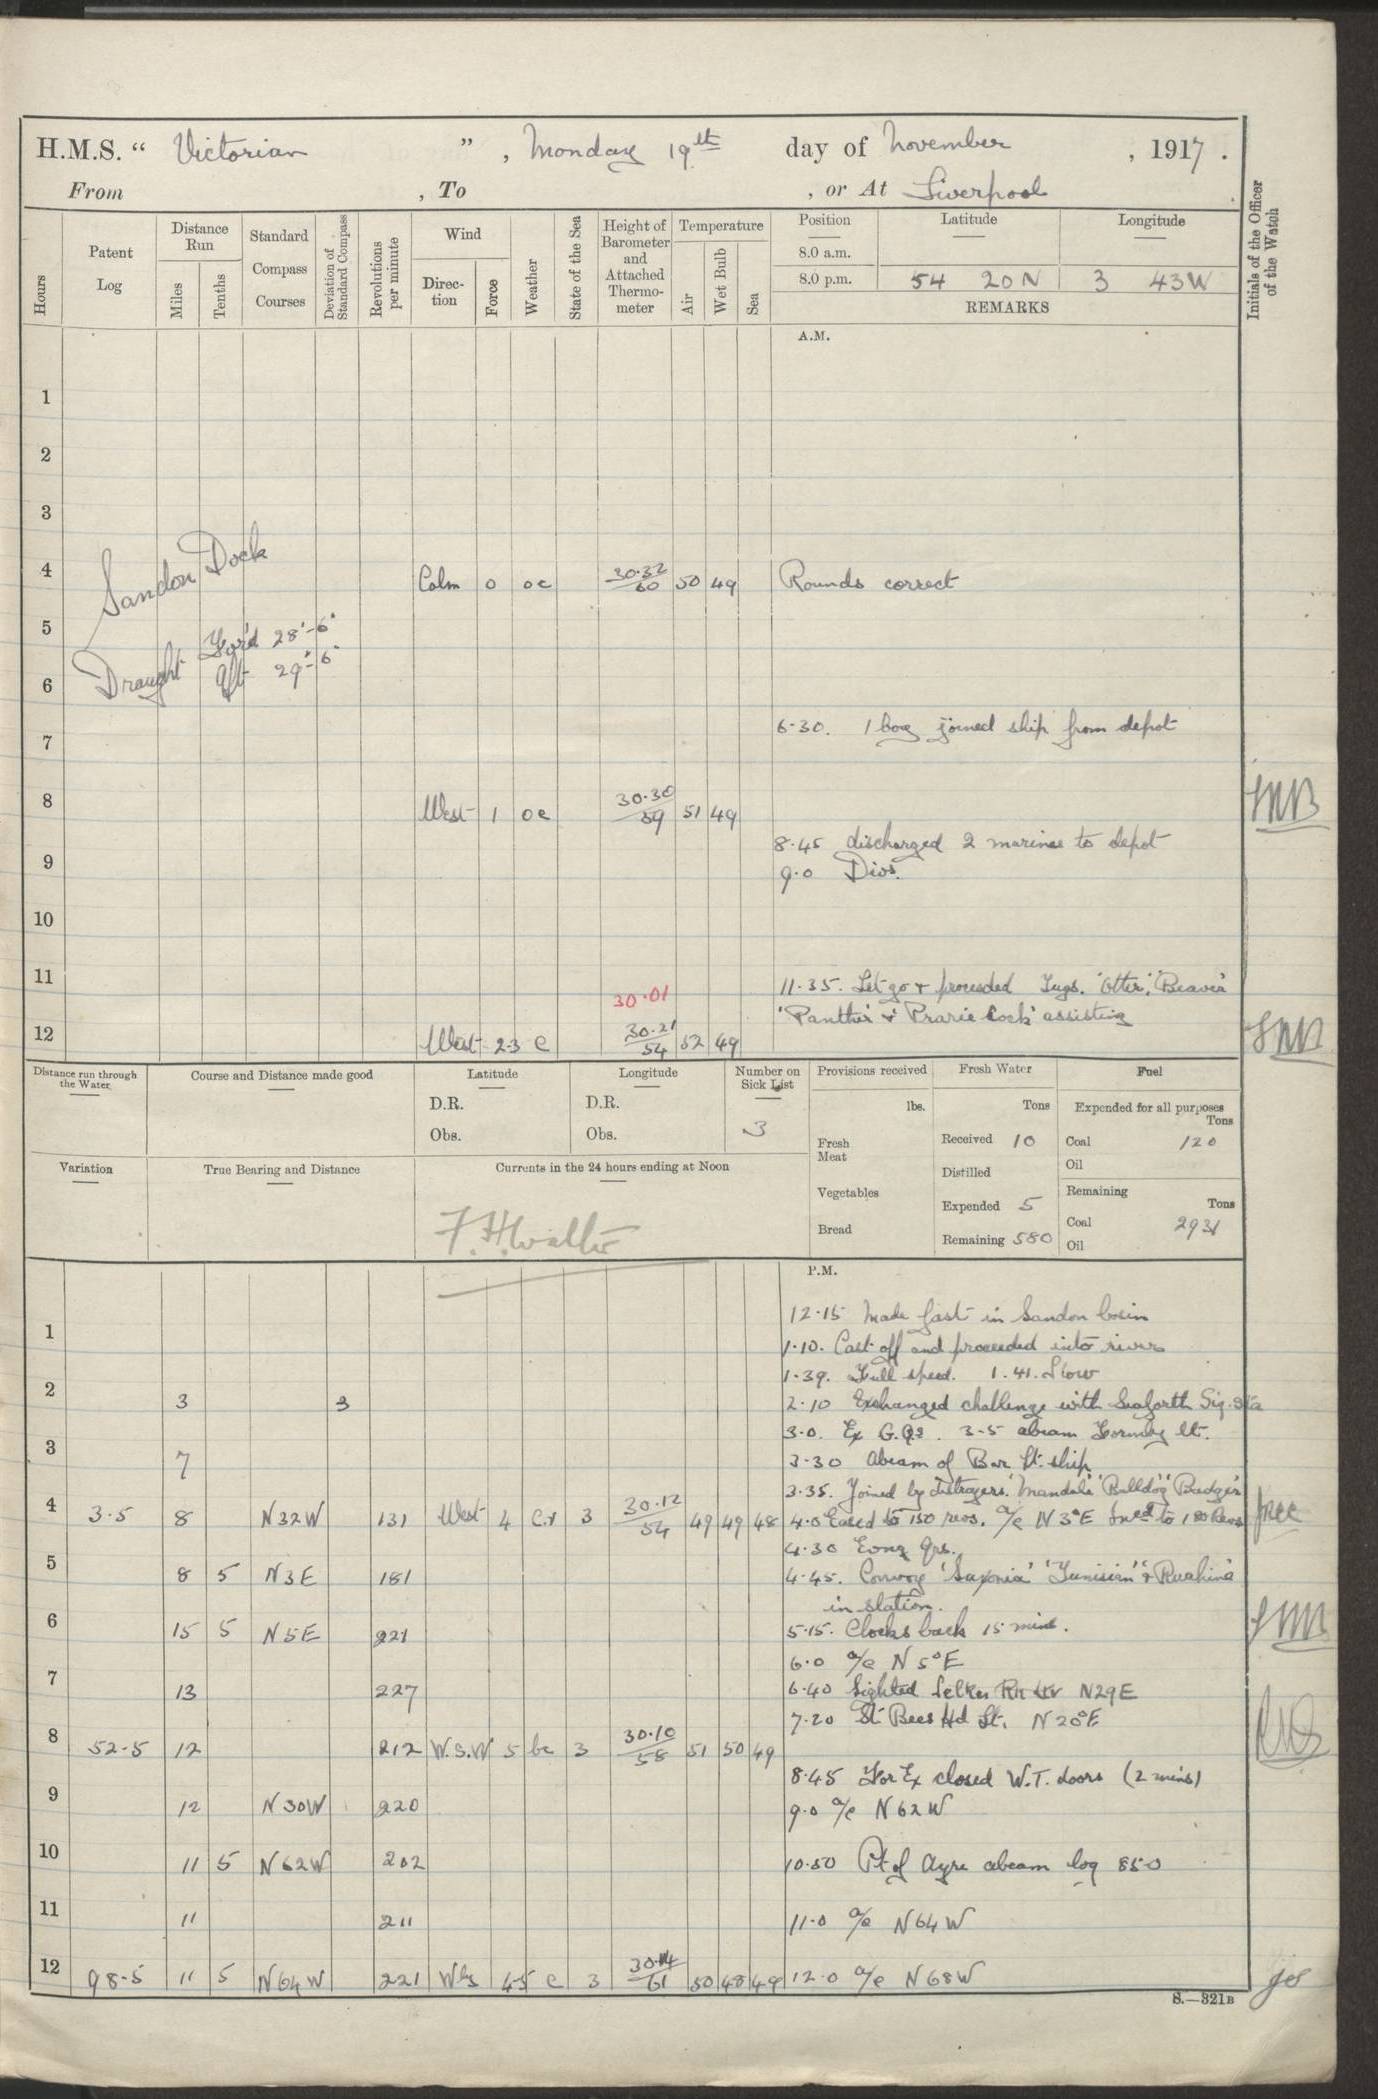 H.M.S. " Victorian " , Monday 19th day of November , 1917 .
From , To , or At Liverpool
Hours
Patent Log
Distance Run
Miles
Tenths
Standard Compass Courses
Deviation of Standard Compass
Revolutions per minute
Wind
Direction
Force
Weather
State of the Sea
Height of Barometer and Attached Thermometer
Temperature
Air
Wet Bulb
Sea
Position Latitude Longitude
8.0 a.m.
8.0 p.m. 54 20 N 3 43 W
REMARKS
Initials of the Officer of the Watch
A.M.
1
2
3
Sandon Dock
4 Calm 0 oc 30.32/60 50 49 Rounds correct
5
Draught For'd 28'-6"
Aft 29'-6"
6
6.30. 1 boy joined ship from depot
7
8 West 1 oc 30.30/59 51 49
8.45 discharged 2 marines to depot
9
9.0 Divs.
10
11 11.35. Let go & proceeded Tugs. 'Otter', 'Beaver'
30.01
'Panther' & 'Prarie Cock' assisting
12 West 2-3 c 30.21/54 52 49
Distance run through the Water
Course and Distance made good
Latitude
D.R.
Obs.
Longitude
D.R.
Obs.
Number on Sick List
3
Provisions received
lbs.
Fresh Meat
Vegetables
Bread
Fresh Water
Tons
Received 10
Distilled
Expended 5
Remaining 580
Fuel
Expended for all purposes
Tons
Coal 120
Oil
Remaining
Tons
Coal 2931
Oil
Variation
True Bearing and Distance
Currents in the 24 hours ending at Noon
P.M.
12.15 Made fast in Sandon basin
1
1.10. Cast off and proceeded into river
1.39. Full speed. 1.41. Slow
2 3 3 2.10 Exchanged challenge with Seaforth Sig. Sta
3.0. Ex G.Qs. 3-5 abeam Formby lt.
3 7 3.30 Abeam of Bar Lt. ship
3.35. Joined by destroyers 'Mandate' 'Bulldog' 'Badger'
4 3.5 8 N32W 131 West 4 3 30.12/54 49 49 48 4.0 Eased to 150 revs. a/c N 3°E Incd to 180 Revs
4.30 Evng Qrs.
5 8 5 N3E 181 4.45. Convoy 'Saxonia' 'Tunisian' & 'Ruahine'
in station.
6 15 5 N5E 221 5.15. Clocks back 15 mins.
6.0 a/c N 5°E
7 13 227 6.40 Sighted Selker N29E
7.20 St Bees Hd Lt. N 20°E
8 52.5 12 212 W.S.W 5 bc 3 30.10/58 51 50 49
8.45 For Ex closed W.T. doors (2 mins)
9 12 N30W 220 9.0 a/c N62W
10 11 5 N62W 202 10.50 Pt of Ayre abeam log 85.0
11 11 211 11.0 a/c N64W
12 98.5 11 5 N64W 221 4-5 c 3 50 48 49 12.0 a/c N68W
S.—321B